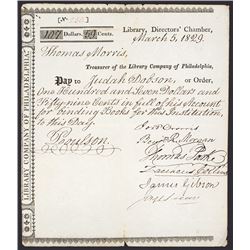 107 Dollars, 59 Cents.
Library, Directors' Chamber,
March 5, 1829.
Thomas Morris,
Treasurer of the Library Company of Philadelphia,
Pay to Judah Dobson, or Order,
One Hundred and Seven Dollars and
Fifty-nine Cents in full of his Account
for binding Books for this Institution,
to this Day.
Poulson.
Benj. R. Morgan
Thomas Parke
Zaccheus Collins
James Gibson
LIBRARY COMPANY OF PHILADELPHIA.